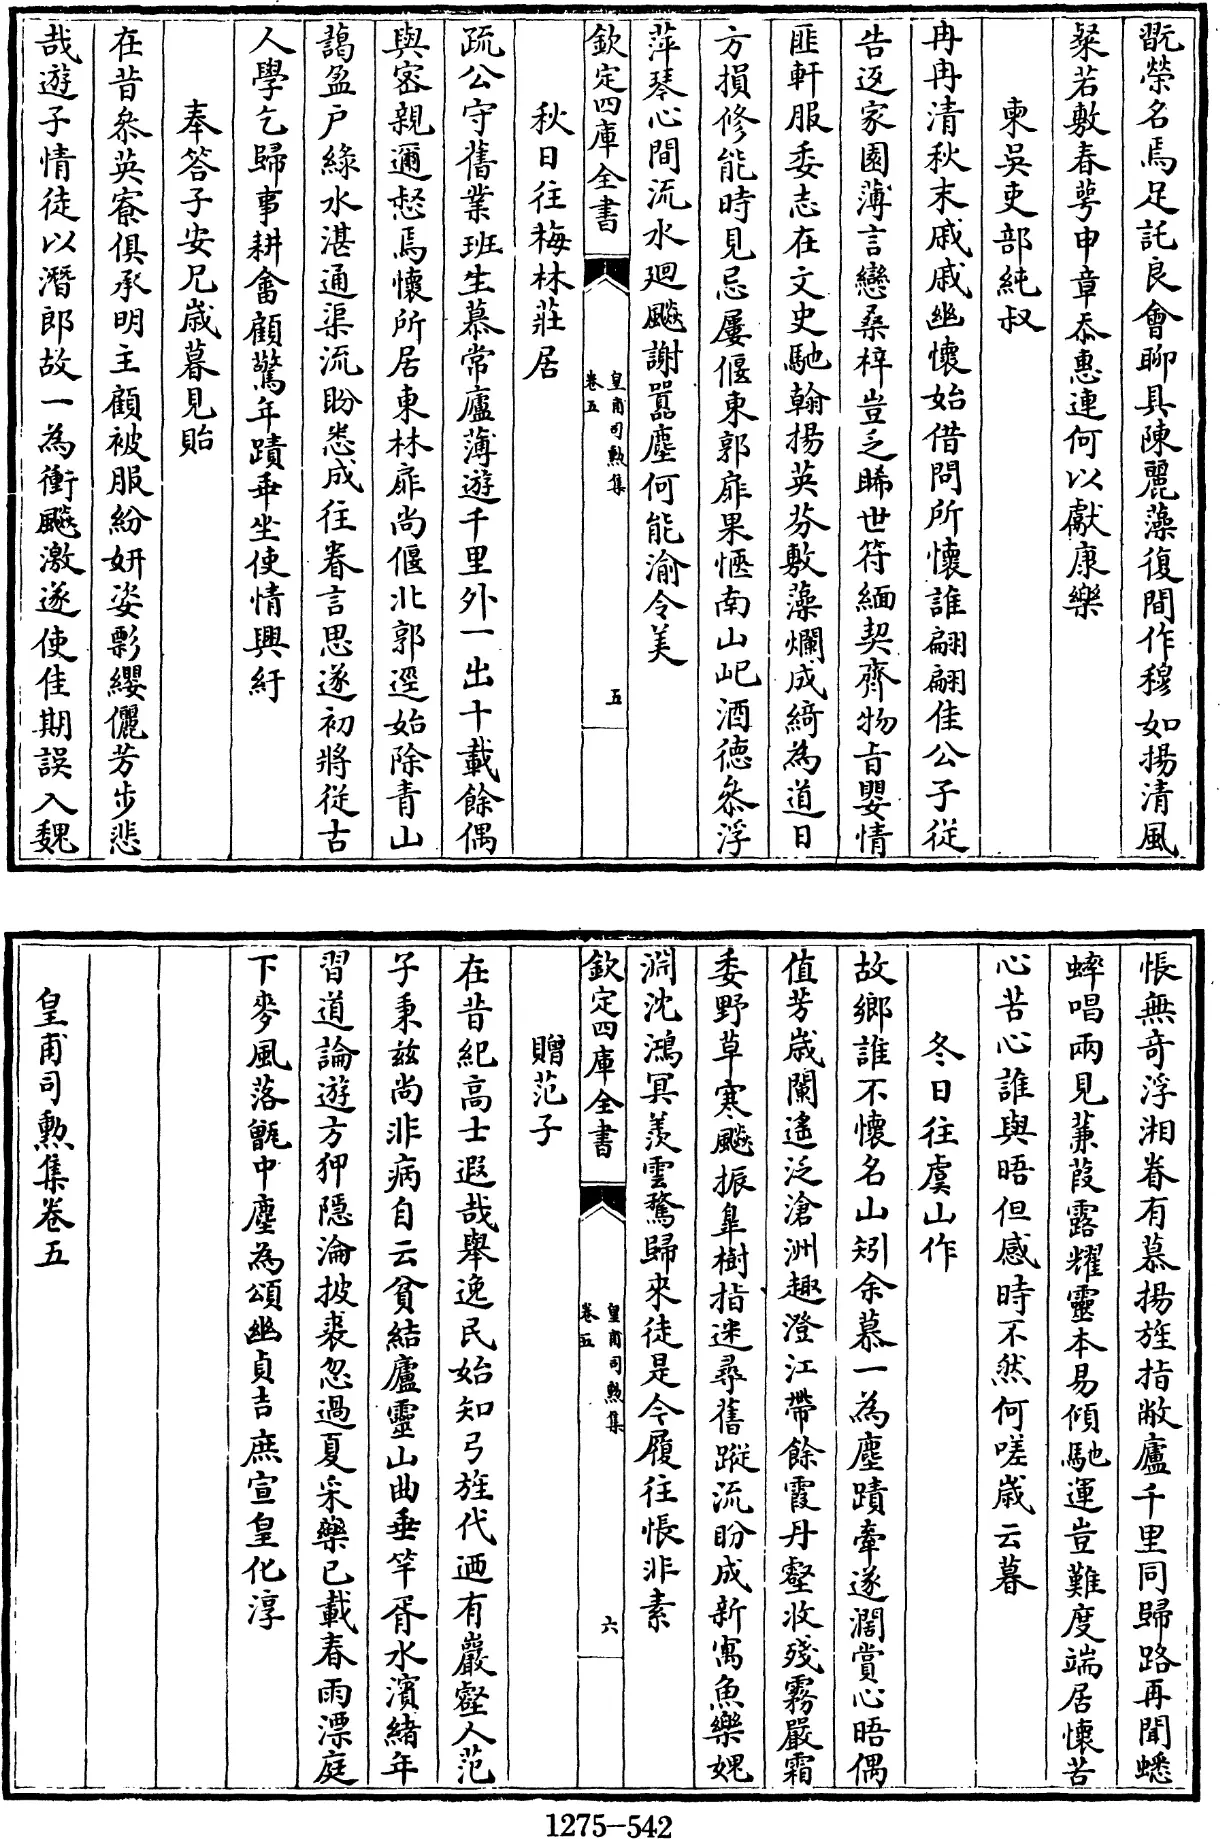 翫榮名焉足託良會聊具陳麗藻復間作穆如揚清風
粲若敷春萼申章忝惠連何以獻康樂
柬吳吏部純叔
冉冉清秋末戚戚幽懷始借問所懷誰翩翩佳公子從
告返家園薄言戀桑梓豈乏睎世符緬契齊物旨嬰情
匪軒服委志在文史馳翰揚英芬敷藻爛成綺為道日
方損修能時見忌屢偃東郭扉果愜南山屺酒德叅浮
萍琴心間流水廻飈謝囂塵何能渝令美
欽定四庫全書
皇甫司勲集
卷五
五
秋日往梅林莊居
疏公守舊業班生慕常廬薄遊千里外一出十載餘偶
與密親邇憖焉懷所居東林扉尚偃北郭逕始除青山
藹盈戶緑水湛通渠流盼悉成往眷言思遂初將從古
人學乞歸事耕畬顧驚年蹟垂坐使情興紆
奉答子安兄嵗暮見貽
在昔叅英寮俱承明主顧被服紛妍姿影纓儷芳步悲
哉遊子情徒以潛郎故一為衝飈激遂使佳期誤入魏
悵無竒浮湘眷有慕揚旌指敝廬千里同歸路再聞蟋
蟀唱兩見蒹葭露耀靈本易傾馳運豈難度端居懷苦
心苦心誰與晤但感時不然何嗟嵗云暮
冬日往虞山作
故鄉誰不懷名山矧余慕一為塵蹟牽遂濶賞心晤偶
值芳嵗闌遙泛滄洲趣澄江帶餘霞丹壑收殘霧嚴霜
委野草寒飈振臯樹指迷尋舊蹤流盼成新寓魚樂媿
淵沈鴻冥羨雲騖歸來徒是今履往悵非素
欽定四庫全書
皇甫司勲集
卷五
六
贈范子
在昔紀高士遐哉舉逸民始知弓旌代廼有巖壑人范
子秉兹尚非病自云貧結廬靈山曲垂竿胥水濱緒年
習道論遊方狎隠淪披裘忽過夏采藥已載春雨漂庭
下麥風落甑中塵為頌幽貞吉庶宣皇化淳
皇甫司勲集卷五
1275-542